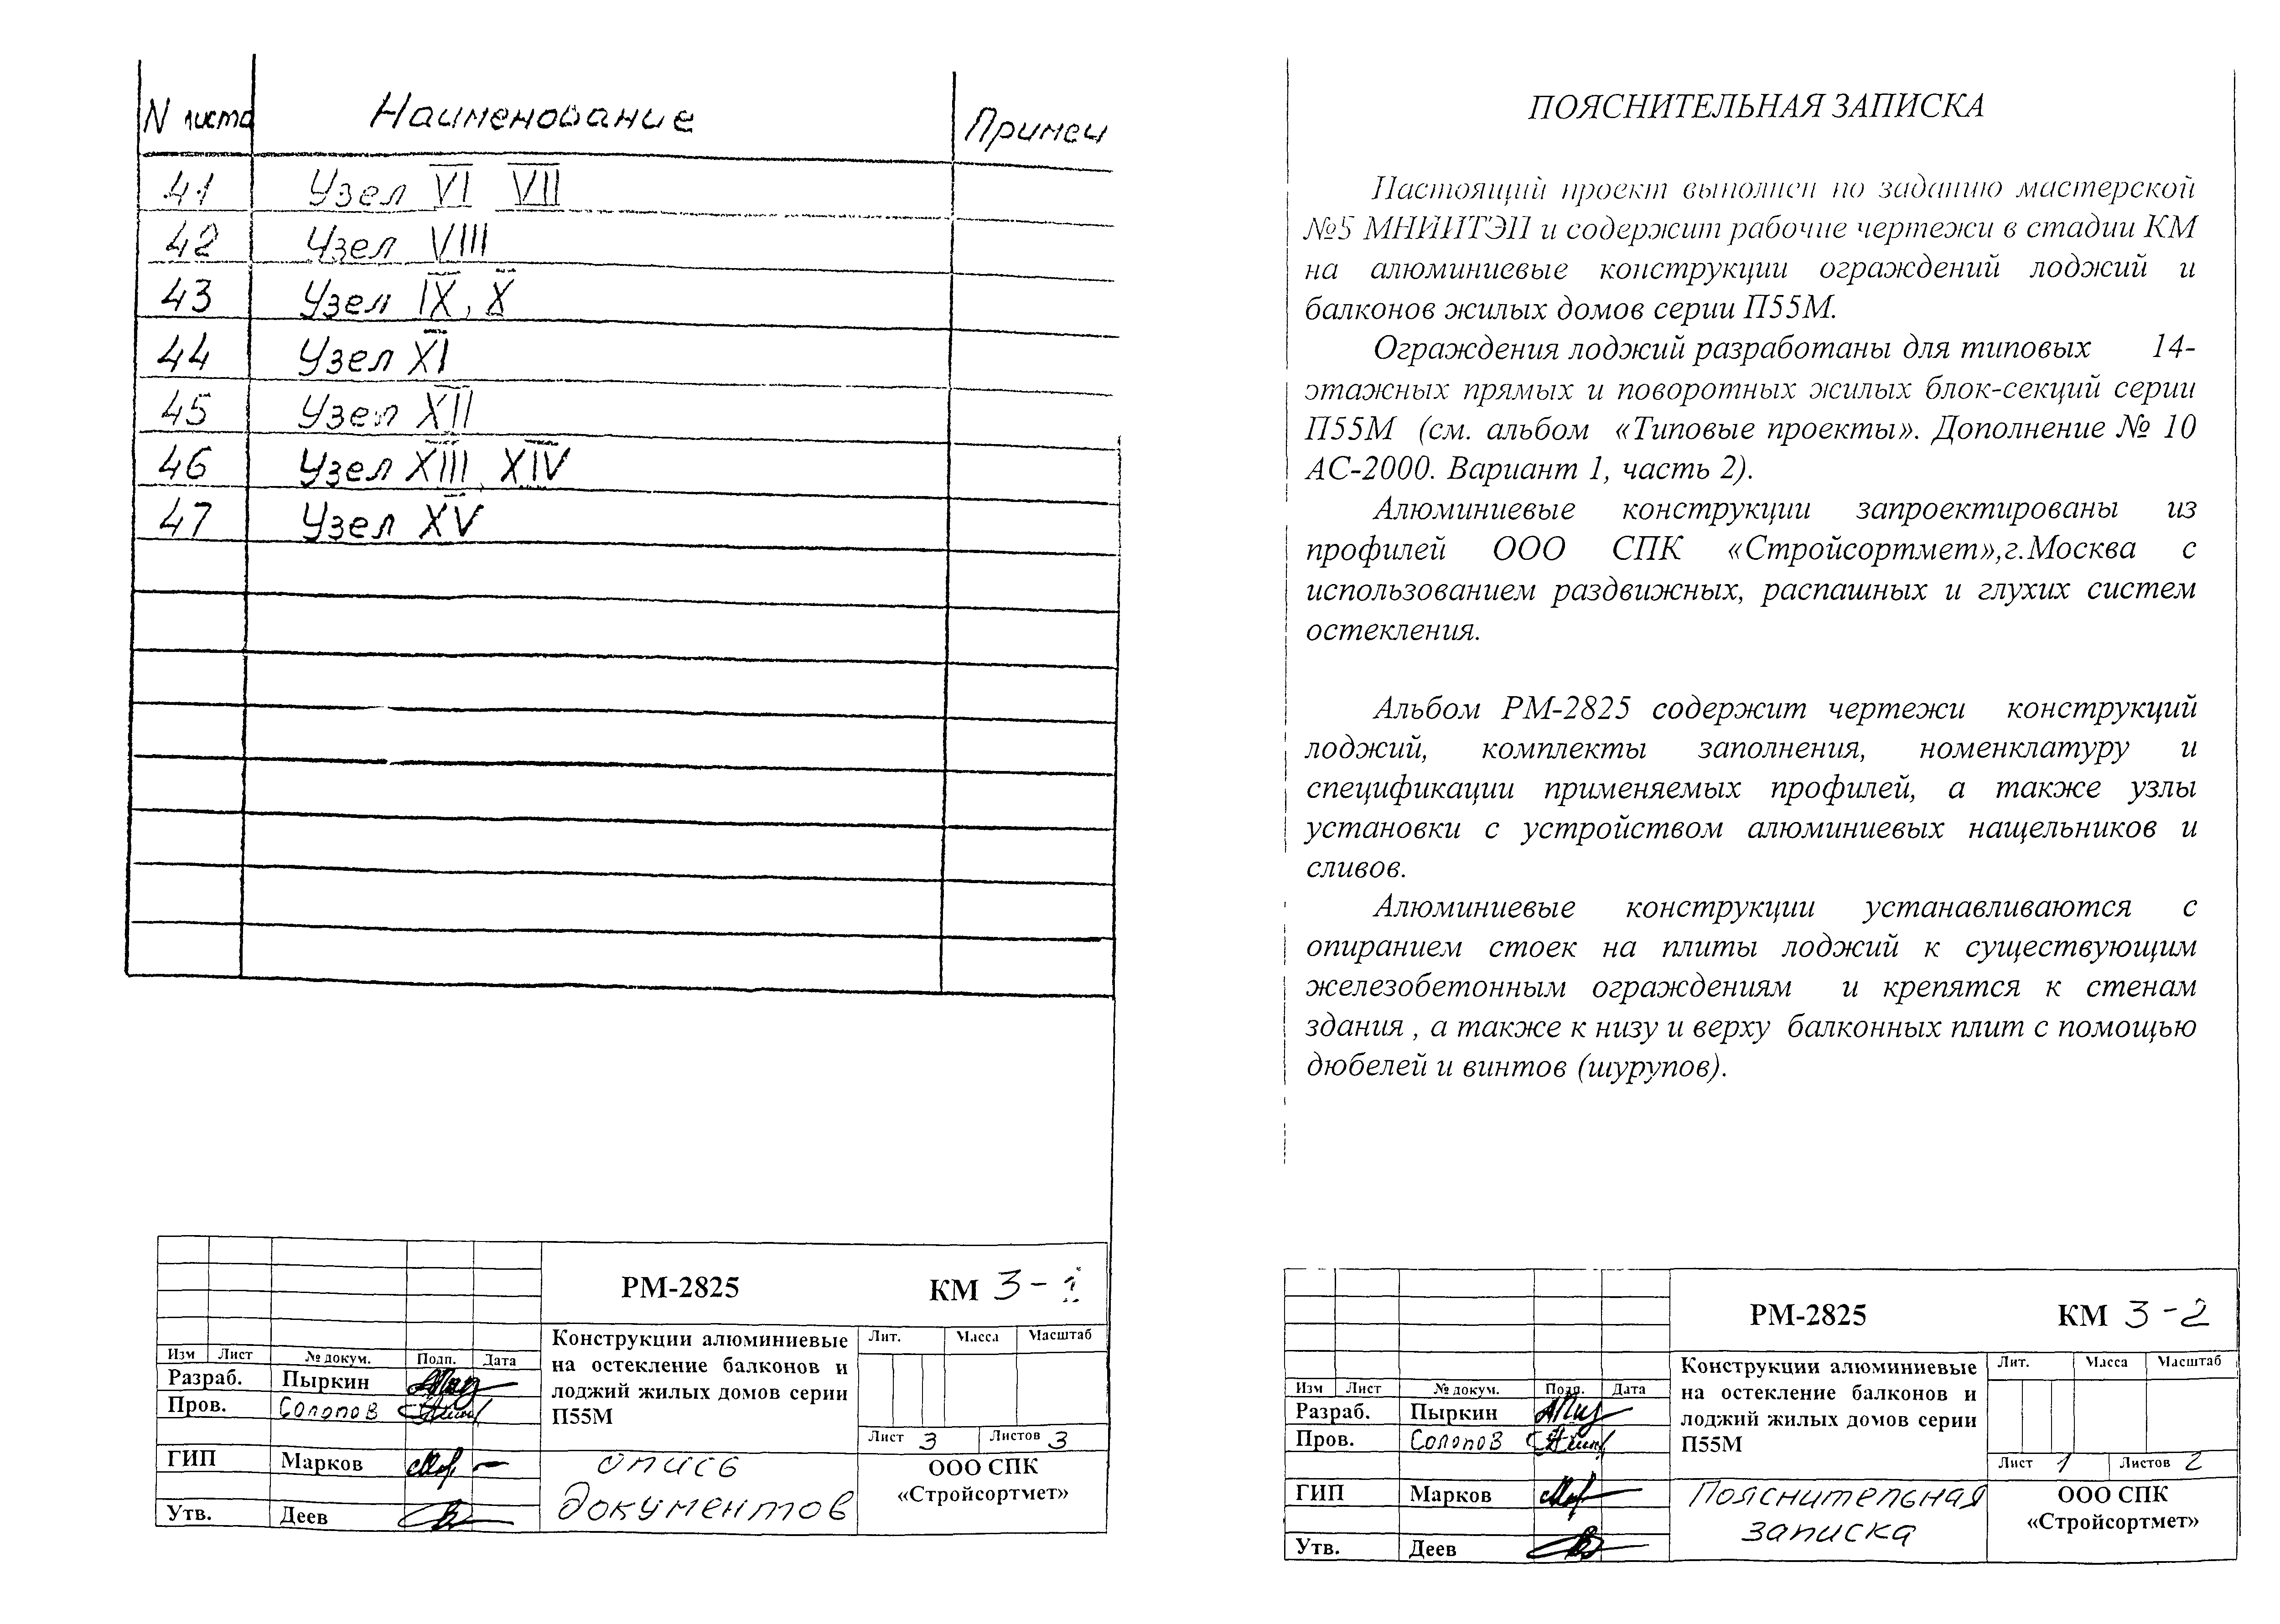 N листа Наименование Примеч
41 Узел VI VII
42 Узел VIII
43 Узел IX, X
44 Узел XI
45 Узел XII
46 Узел XIII, XIV
47 Узел XV
РМ-2825 КМ 3-1
Конструкции алюминиевые
на остекление балконов и
лоджий жилых домов серии
П55М
Лит. Масса Масштаб
Изм Лист № докум. Подп. Дата
Разраб. Пыркин
Пров. Солопов
Лист 3 Листов 3
ГИП Марков
опись
документов
ООО СПК
«Стройсортмет»
Утв. Деев
ПОЯСНИТЕЛЬНАЯ ЗАПИСКА
Настоящий проект выполнен по заданию мастерской
№5 МНИИТЭП и содержит рабочие чертежи в стадии КМ
на алюминиевые конструкции ограждений лоджий и
балконов жилых домов серии П55М.
Ограждения лоджий разработаны для типовых 14-
этажных прямых и поворотных жилых блок-секций серии
П55М (см. альбом «Типовые проекты». Дополнение № 10
АС-2000. Вариант 1, часть 2).
Алюминиевые конструкции запроектированы из
профилей ООО СПК «Стройсортмет»,г.Москва с
использованием раздвижных, распашных и глухих систем
остекления.
Альбом РМ-2825 содержит чертежи конструкций
лоджий, комплекты заполнения, номенклатуру и
спецификации применяемых профилей, а также узлы
установки с устройством алюминиевых нащельников и
сливов.
Алюминиевые конструкции устанавливаются с
опиранием стоек на плиты лоджий к существующим
железобетонным ограждениям и крепятся к стенам
здания , а также к низу и верху балконных плит с помощью
дюбелей и винтов (шурупов).
РМ-2825 КМ 3-2
Конструкции алюминиевые
на остекление балконов и
лоджий жилых домов серии
П55М
Лит. Масса Масштаб
Изм Лист № докум. Подп. Дата
Разраб. Пыркин
Пров. Солопов
Лист 1 Листов 2
ГИП Марков
Пояснительная
записка
ООО СПК
«Стройсортмет»
Утв. Деев